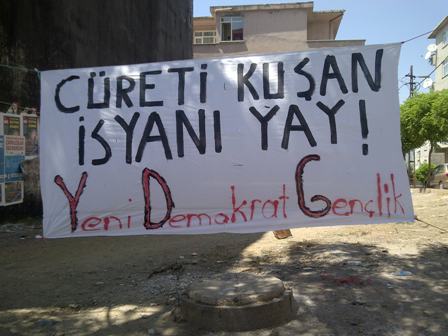 CÜRETİ KUŞAN
İSYANI YAY!
Yeni Demokrat Gençlik